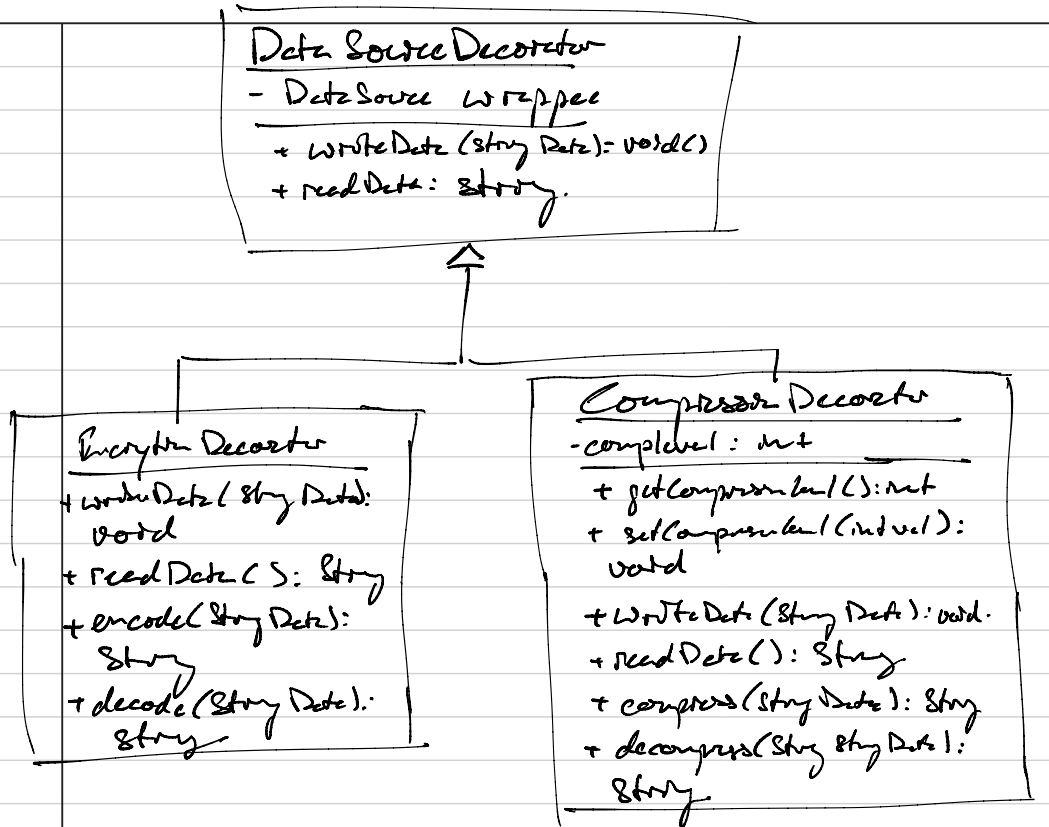 Data Source Decorator
- DataSource wrappee
+ writeData (String Data): void()
+ readData: String.
Encryption Decorator
+ writeData (String Data):
void
+ readData ( ): String
+ encode (String Data):
String
+ decode (String Data):
String
Compression Decorator
- complevel : int
+ getCompressionlevel () : int
+ setCompressionlevel (int val) :
void
+ writeData (String Data) : void.
+ readData () : String
+ compress (String Data) : String
+ decompress (String String Data) :
String.